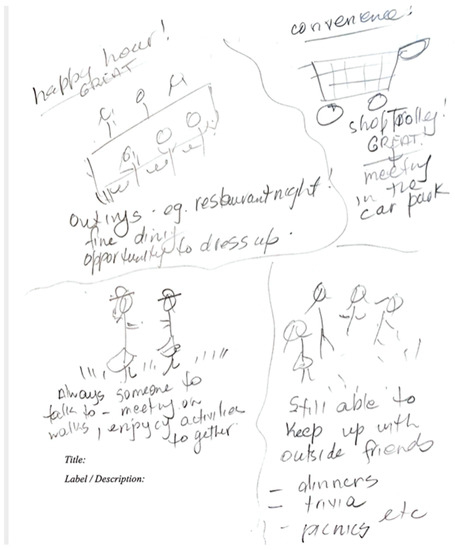 happy hour!
GREAT
outings. eg. restaurant night!
fine dining
opportunity to dress up.
convenience!
shop Trolley!
GREAT!
meeting
in the
car park
Always someone to
talk to - meeting on
walks, enjoy activities
together.
Still able to
keep up with
outside friends
- dinners
- trivia
- picnics etc
Title:
Label / Description: